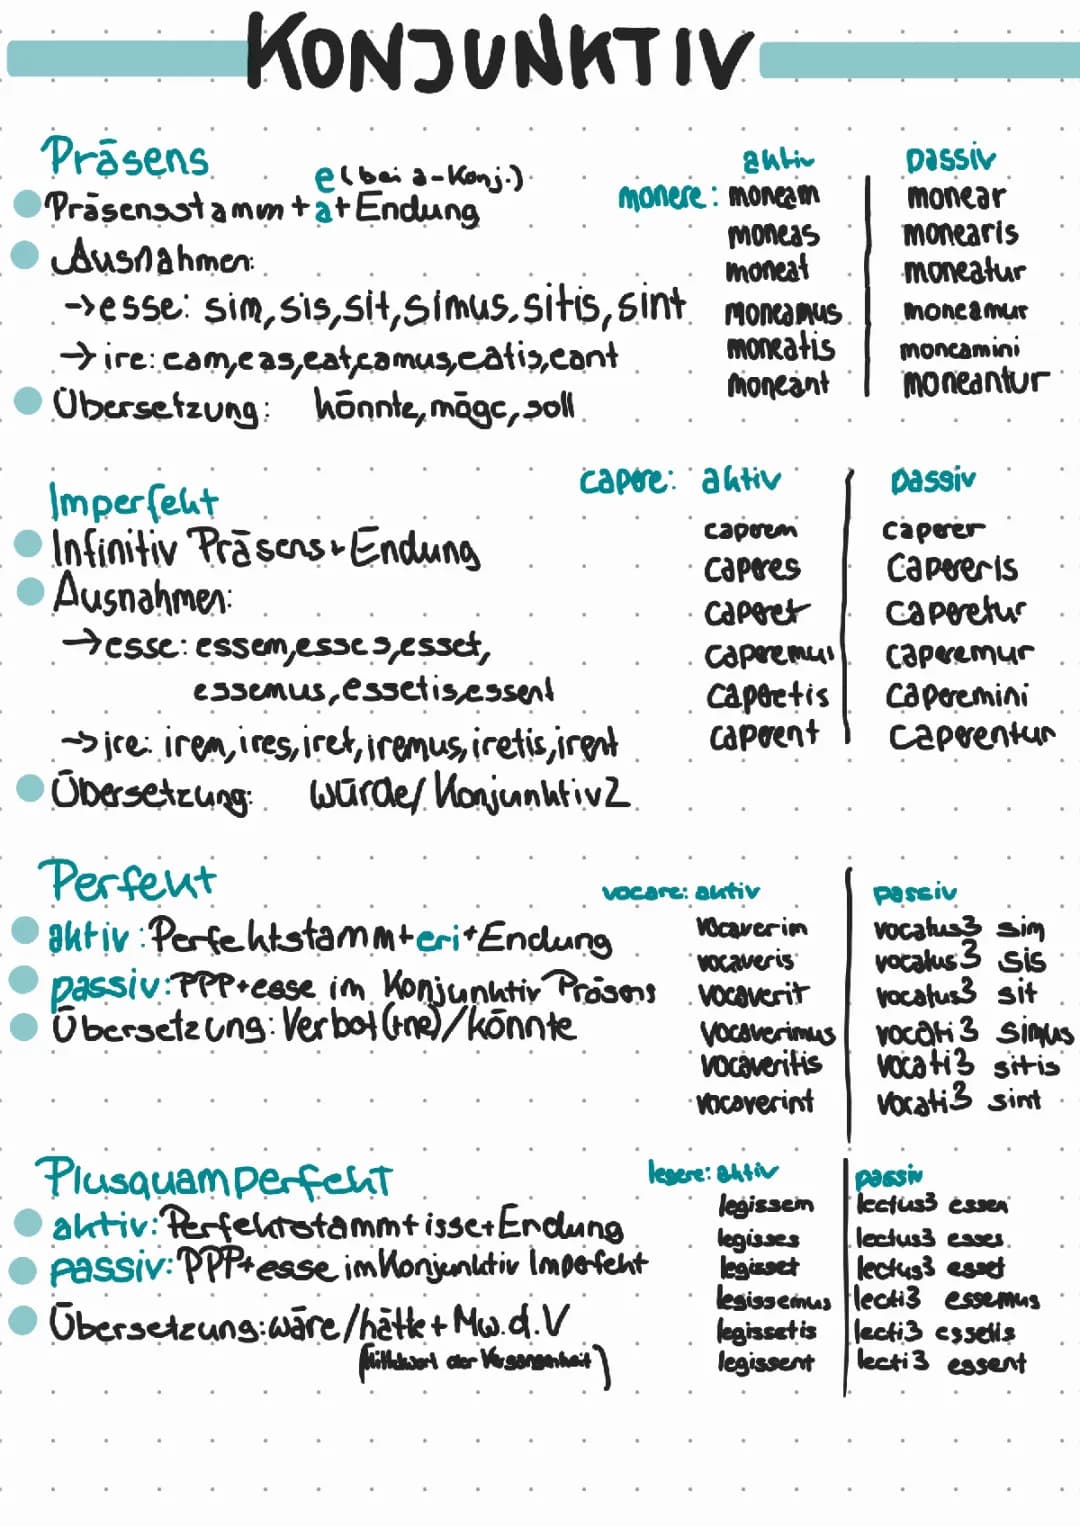 KONJUNKTIV
Präsens
e (bei a-Konj.)
Präsensstamm + a + Endung
Ausnahmen:
→ esse: sim, sis, sit, simus, sitis, sint
→ ire: eam, eas, eat, eamus, eatis, eant
Übersetzung: könnte, möge, soll
aktiv | passiv
monere: moneam | monear
moneas | monearis
moneat | moneatur
moneamus | moneamur
moneatis | moneamini
moneant | moneantur
Imperfekt
Infinitiv Präsens + Endung
Ausnahmen:
→ esse: essem, esses, esset,
essemus, essetis, essent
→ ire: irem, ires, iret, iremus, iretis, irent
Übersetzung: würde / Konjunktiv 2
capere: aktiv | passiv
caperem | caperer
caperes | Capereris
caperet | caperetur
caperemus | caperemur
caperetis | caperemini
caperent | caperentur
Perfekt
aktiv: Perfektstamm + eri + Endung
passiv: PPP + esse im Konjunktiv Präsens
Übersetzung: Verbot (+ne) / könnte
vocare: aktiv | passiv
vocaverim | vocatus3 sim
vocaveris | vocatus3 sis
vocaverit | vocatus3 sit
vocaverimus | vocati3 simus
vocaveritis | vocati3 sitis
vocaverint | vocati3 sint
Plusquamperfekt
aktiv: Perfektstamm + isse + Endung
passiv: PPP + esse im Konjunktiv Imperfekt
Übersetzung: wäre / hätte + Mw. d. V
(Mittelwort der Vergangenheit)
legere: aktiv | passiv
legissem | lectus3 essem
legisses | lectus3 esses
legisset | lectus3 esset
legissemus | lecti3 essemus
legissetis | lecti3 essetis
legissent | lecti3 essent